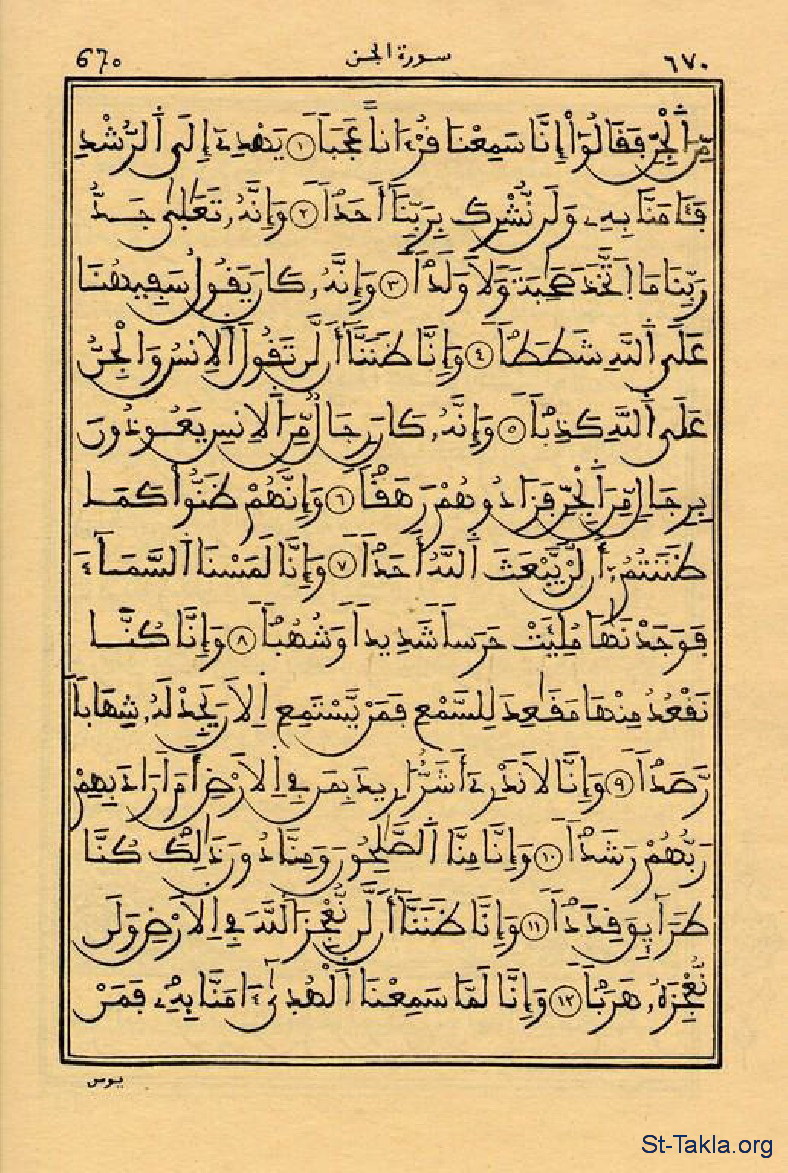 670 سورة الجن ٦٧٠
مِّنَ اَ۬لْجِنِّ فَقَالُوٓاْ إِنَّا سَمِعْنَا قُرْءَاناً عَجَباً ١ يَهْدِےٓ إِلَى اَ۬لرُّشْدِ
فَـَٔامَنَّا بِهِۦ وَلَن نُّشْرِكَ بِرَبِّنَآ أَحَداً ٢ وَإِنَّهُۥ تَعَٰلَىٰ جَدُّ
رَبِّنَا مَا اَ۪تَّخَذَ صَٰحِبَةً وَلَا وَلَداً ٣ وَإِنَّهُۥ كَانَ يَقُولُ سَفِيهُنَا
عَلَى اَ۬للَّهِ شَطَطاً ٤ وَإِنَّا ظَنَنَّآ أَن لَّن تَقُولَ اَ۬لِانسُ وَالْجِنُّ
عَلَى اَ۬للَّهِ كَذِباً ٥ وَإِنَّهُۥ كَانَ رِجَالٌ مِّنَ اَ۬لِانسِ يَعُوذُونَ
بِرِجَالٍ مِّنَ اَ۬لْجِنِّ فَزَادُوهُمْ رَهَقاً ٦ وَإِنَّهُمْ ظَنُّواْ كَمَا
ظَنَنتُمُۥٓ أَن لَّنْ يَّبْعَثَ اَ۬للَّهُ أَحَداً ٧ وَإِنَّا لَمَسْنَا اَ۬لسَّمَآءَ
فَوَجَدْنَٰهَا مُلِئَتْ حَرَساً شَدِيداً وَشُهُباً ٨ وَإِنَّا كُنَّا
نَقْعُدُ مِنْهَا مَقَٰعِدَ لِلسَّمْعِ فَمَنْ يَّسْتَمِعِ اِ۬لَانَ يَجِدْ لَهُۥ شِهَاباً
رَّصَداً ٩ وَإِنَّا لَا نَدْرِےٓ أَشَرٌّ ا۟رِيدَ بِمَن فِے اِ۬لَارْضِ أَمَ اَرَادَ بِهِمْ
رَبُّهُمْ رَشَداً ١٠ وَإِنَّا مِنَّا اَ۬لصَّٰلِحُونَ وَمِنَّا دُونَ ذَٰلِكَ كُنَّا
طَرَآئِقَ قِدَداً ١١ وَإِنَّا ظَنَنَّآ أَن لَّن نُّعْجِزَ اَ۬للَّهَ فِے اِ۬لَارْضِ وَلَن
نُّعْجِزَهُۥ هَرَباً ١٢ وَإِنَّا لَمَّا سَمِعْنَا اَ۬لْهُدَىٰٓ ءَامَنَّا بِهِۦ فَمَنْ
يومن
St-Takla.org